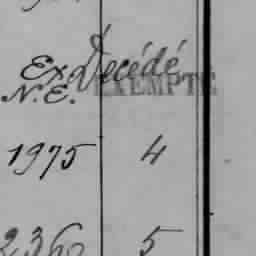 Décédé
Ex. EXEMPTÉ
N.E.
1975 4
2360 5